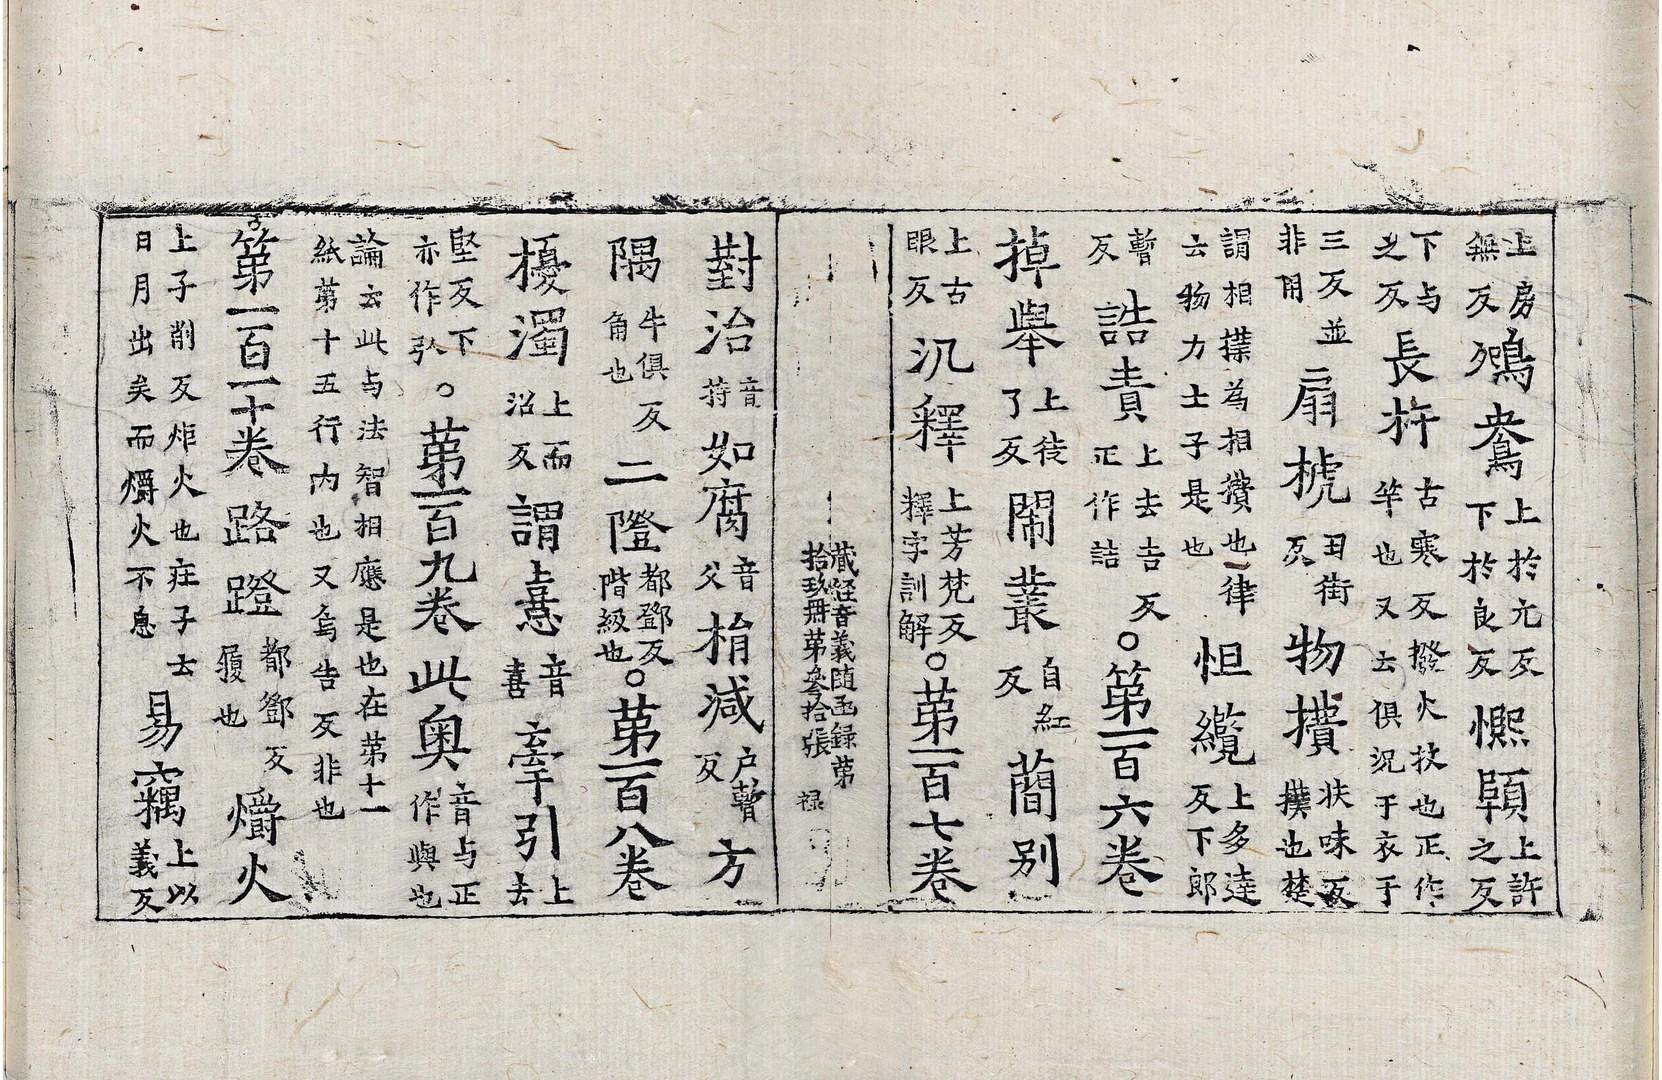 上房無反鴛鴦上於元反下於良反㷩𩓥上許之反
下与之反長杆古寒反撥火杖也正作竿也又士俱況于衣于
三反並非用扇搋丑街反物攢扶味反撲也楚
謂相撲為相攢也一律云物力士子是也怛纜上多達反下郎
暫反誥責上去吉反正作詰○第一百六卷
掉舉上徒了反鬧叢自紅反蕳别
上古眼反汎釋上芳梵反釋字訓解○第一百七卷
藏經音義随函録第拾玖冊第叄拾張 禄
對治音持如腐音父㨋減户暫反方
隅牛俱反角也二隥都鄧反階級也○第一百八卷
擾濁上而沼反謂憙音喜牽引上去
堅反下亦作㧈○第一百九卷此奥音与正作與也
論云此与法智相應是也在第十一紙第十五行内也又烏告反非也
○第一百一十卷路蹬都鄧反履也爝火
上子削反炬火也莊子云日月出矣而爝火不息易竊上以義反